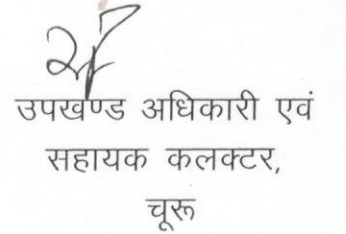 उपखण्ड अधिकारी एवं
सहायक कलक्टर,
चूरू